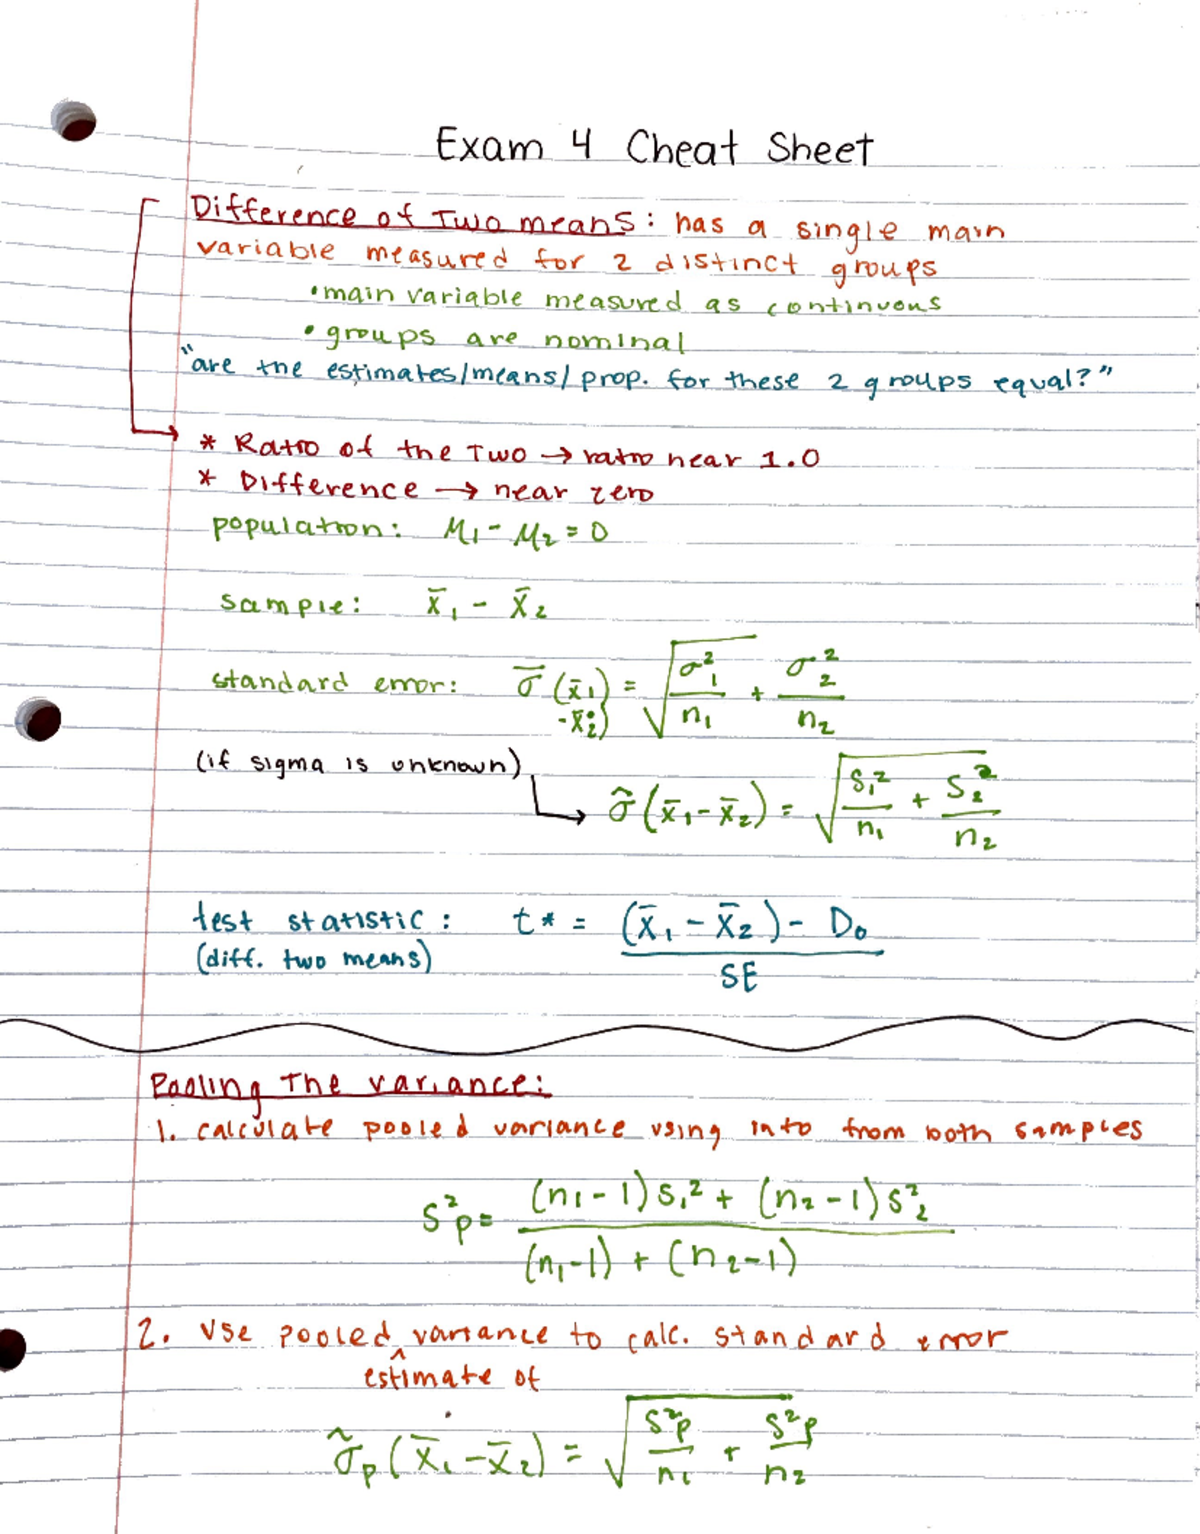 Exam 4 Cheat Sheet
Difference of Two means: has a single main
variable measured for 2 distinct groups
• main variable measured as continuous
• groups are nominal
"are the estimates/means/prop. for these 2 groups equal?"
* Ratio of the Two → ratio near 1.0
* Difference → near zero
population: μ₁ - μ₂ = 0
sample: x̄₁ - x̄₂
standard error: σ̅(x̄₁ - x̄₂) = √(σ₁²/n₁ + σ₂²/n₂)
(if sigma is unknown)
↳ σ̂(x̄₁ - x̄₂) = √(s₁²/n₁ + s₂²/n₂)
test statistic: t* = (x̄₁ - x̄₂) - D₀ / SE
(diff. two means)
Pooling The variance:
1. calculate pooled variance using info from both samples
s²p = (n₁ - 1)s₁² + (n₂ - 1)s₂² / (n₁-1) + (n₂-1)
2. Use pooled ^ variance to calc. standard error
estimate of
σ̃p(x̄₁ - x̄₂) = √(s²p/n₁ + s²p/n₂)